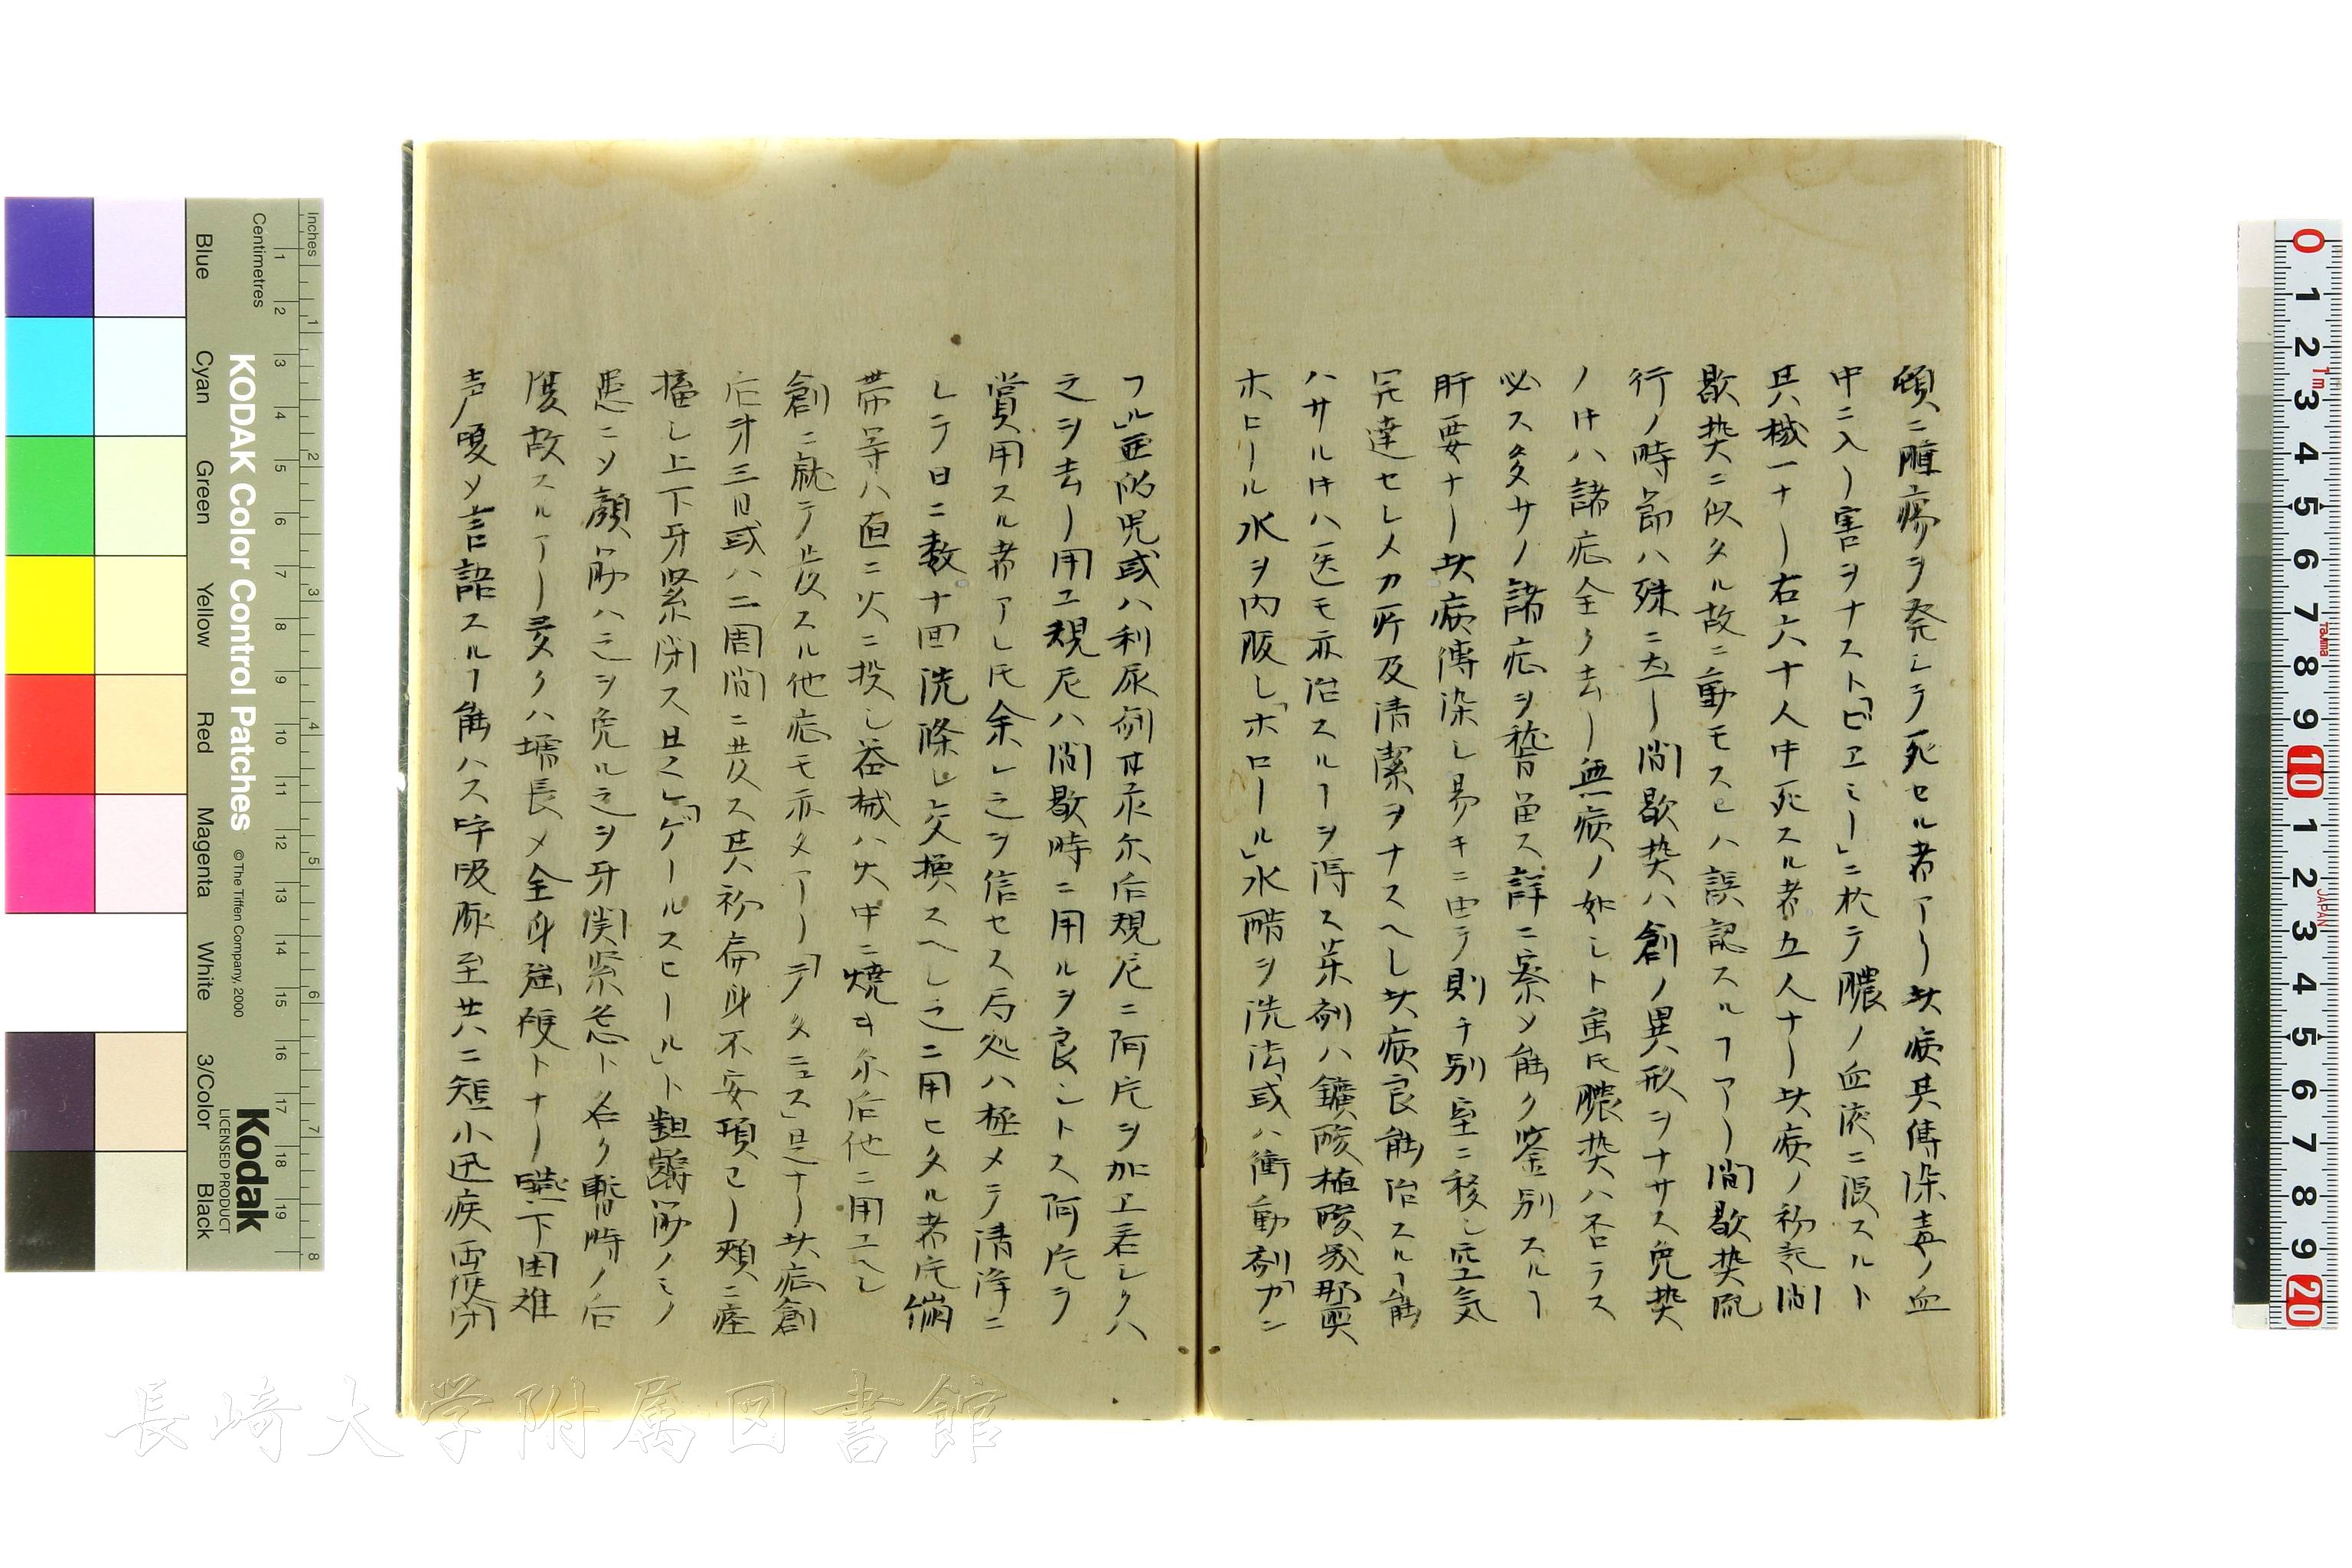 頃ニ腫瘍ヲ発シテ死セル者アリ此病其傳染毒ノ血
中ニ入リ害ヲナスト「ピエミー」ニ於テ膿ノ血液ニ混スルト
其機一ナリ右六十人中死スル者五人ナリ此病ノ初起間
歇熱ニ似タル故ニ動モスレハ誤認スルヿアリ間歇熱流
行ノ時節ハ殊ニ然リ間歇熱ハ創ノ異形ヲナサス免熱
ノ時ハ諸症全ク去リ無病ノ如シト虽𪜈膿熱ハ否ラス
必ス多少ノ諸症ヲ稽留ス詳ニ察シ能ク鉴別スルヿ
肝要ナリ此病傳染シ易キニ由テ則チ別室ニ移シ空気
完達セシメ力所及清潔ヲナスヘシ此病良能治スルヿ能
ハサル時ハ医モ亦治スルヿヲ得ス薬剤ハ鑛酸植酸幾那煎
ホロール水ヲ内服シ「ホロール」水醋ヲ洗法或ハ衝動剤「カン
フル」亜的児或ハ利尿剤ヲ 尓后規尼ニ阿片ヲ加エ若シクハ
之ヲ去リ用ユ規尼ハ間歇時ニ用ルヲ良シトス阿片ヲ
賞用スル者アレ𪜈余レ之ヲ信セス局処ハ極メテ清浄ニ
シテ日ニ数十回洗滌シ交換スヘシ之ニ用ヒタル者片綳
帯等ハ直ニ火ニ投シ器械ハ火中ニ焼キ尓后他ニ用ユヘシ
創ニ就テ発スル他症モ亦タアリ「テタニュス」是ナリ此症創
后才三日或ハ二周間ニ発ス其初扁身不安項巴リ頬ニ痙
搐シ上下牙緊閉ス且ク「ゲールスヒール」ト齟嚼筋ノミノ
患ニシ顔筋ハ之ヲ免ル之ヲ牙関紧急ト名ク暫時ノ后
復故スルアリ多クハ増長シ全身強硬トナリ嚥下困难
声嗄シ言語スルヿ能ハス呼吸脉至共ニ短小迅疾両便閉
長崎大学附属図書館
KODAK Color Control Patches
© The Tiffen Company, 2000
Kodak
LICENSED PRODUCT
Inches
Centimetres
Blue
Cyan
Green
Yellow
Red
Magenta
White
3/Color
Black